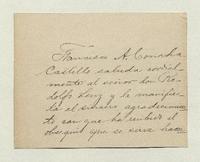 Francisco A. Concha
Castillo saluda cordial-
mente al señor don Ro-
dolfo Lenz y le manifies-
ta el sincero agradecimien-
to con que ha recibido el
obsequio que se sirve hacer